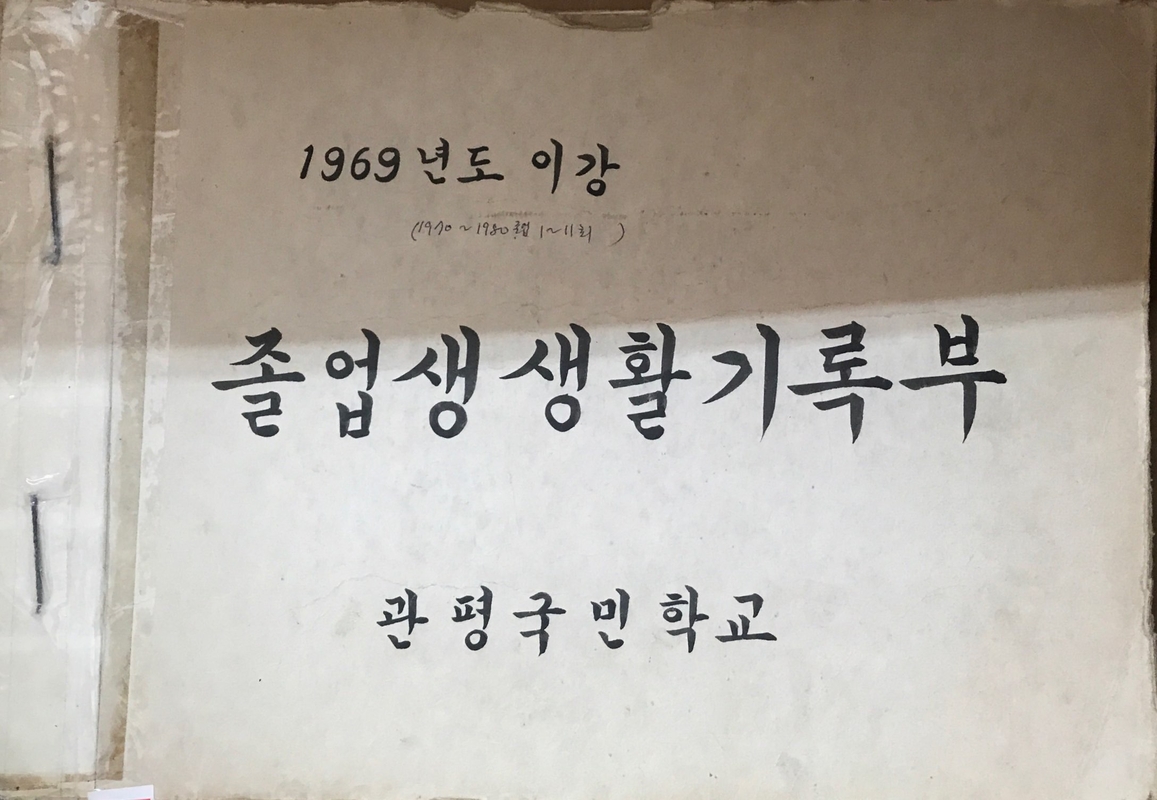 1969년도 이강
(1970~1980졸업 1~11회 )
졸업생생활기록부
관평국민학교